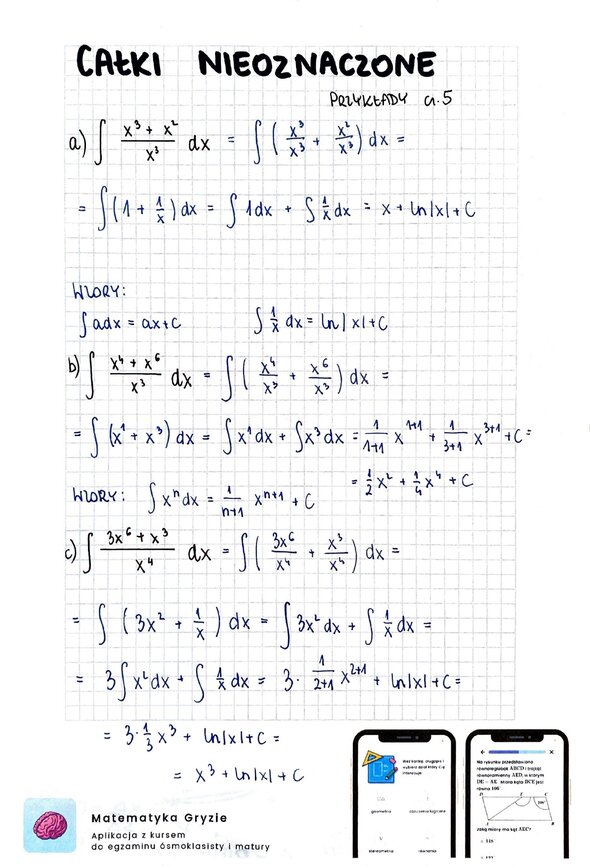 CAŁKI NIEOZNACZONE
PRZYKŁADY cz.5
a) ∫ (x³ + x²)/x³ dx = ∫ (x³/x³ + x²/x³) dx =
= ∫ (1 + 1/x) dx = ∫ 1dx + ∫ 1/x dx = x + ln|x| + C
WZORY:
∫ adx = ax+C ∫ 1/x dx = ln|x|+C
b) ∫ (x⁴ + x⁶)/x³ dx = ∫ (x⁴/x³ + x⁶/x³) dx =
= ∫ (x¹ + x³) dx = ∫ x¹dx + ∫ x³ dx = 1/(1+1) x¹⁺¹ + 1/(3+1) x³⁺¹ + C =
= 1/2 x² + 1/4 x⁴ + C
WZORY: ∫ xⁿ dx = 1/(n+1) xⁿ⁺¹ + C
c) ∫ (3x⁶ + x³)/x⁴ dx = ∫ (3x⁶/x⁴ + x³/x⁴) dx =
= ∫ (3x² + 1/x) dx = ∫ 3x² dx + ∫ 1/x dx =
= 3∫ x²dx + ∫ 1/x dx = 3 · 1/(2+1) x²⁺¹ + ln|x| + C =
= 3 · 1/3 x³ + ln|x| + C =
= x³ + ln|x| + C
Matematyka Gryzie
Aplikacja z kursem
do egzaminu ósmoklasisty i matury
geometria
stereometria
Na rysunku przedstawiono
równoległobok ABCD i trójkąt
równoramienny AED, w którym